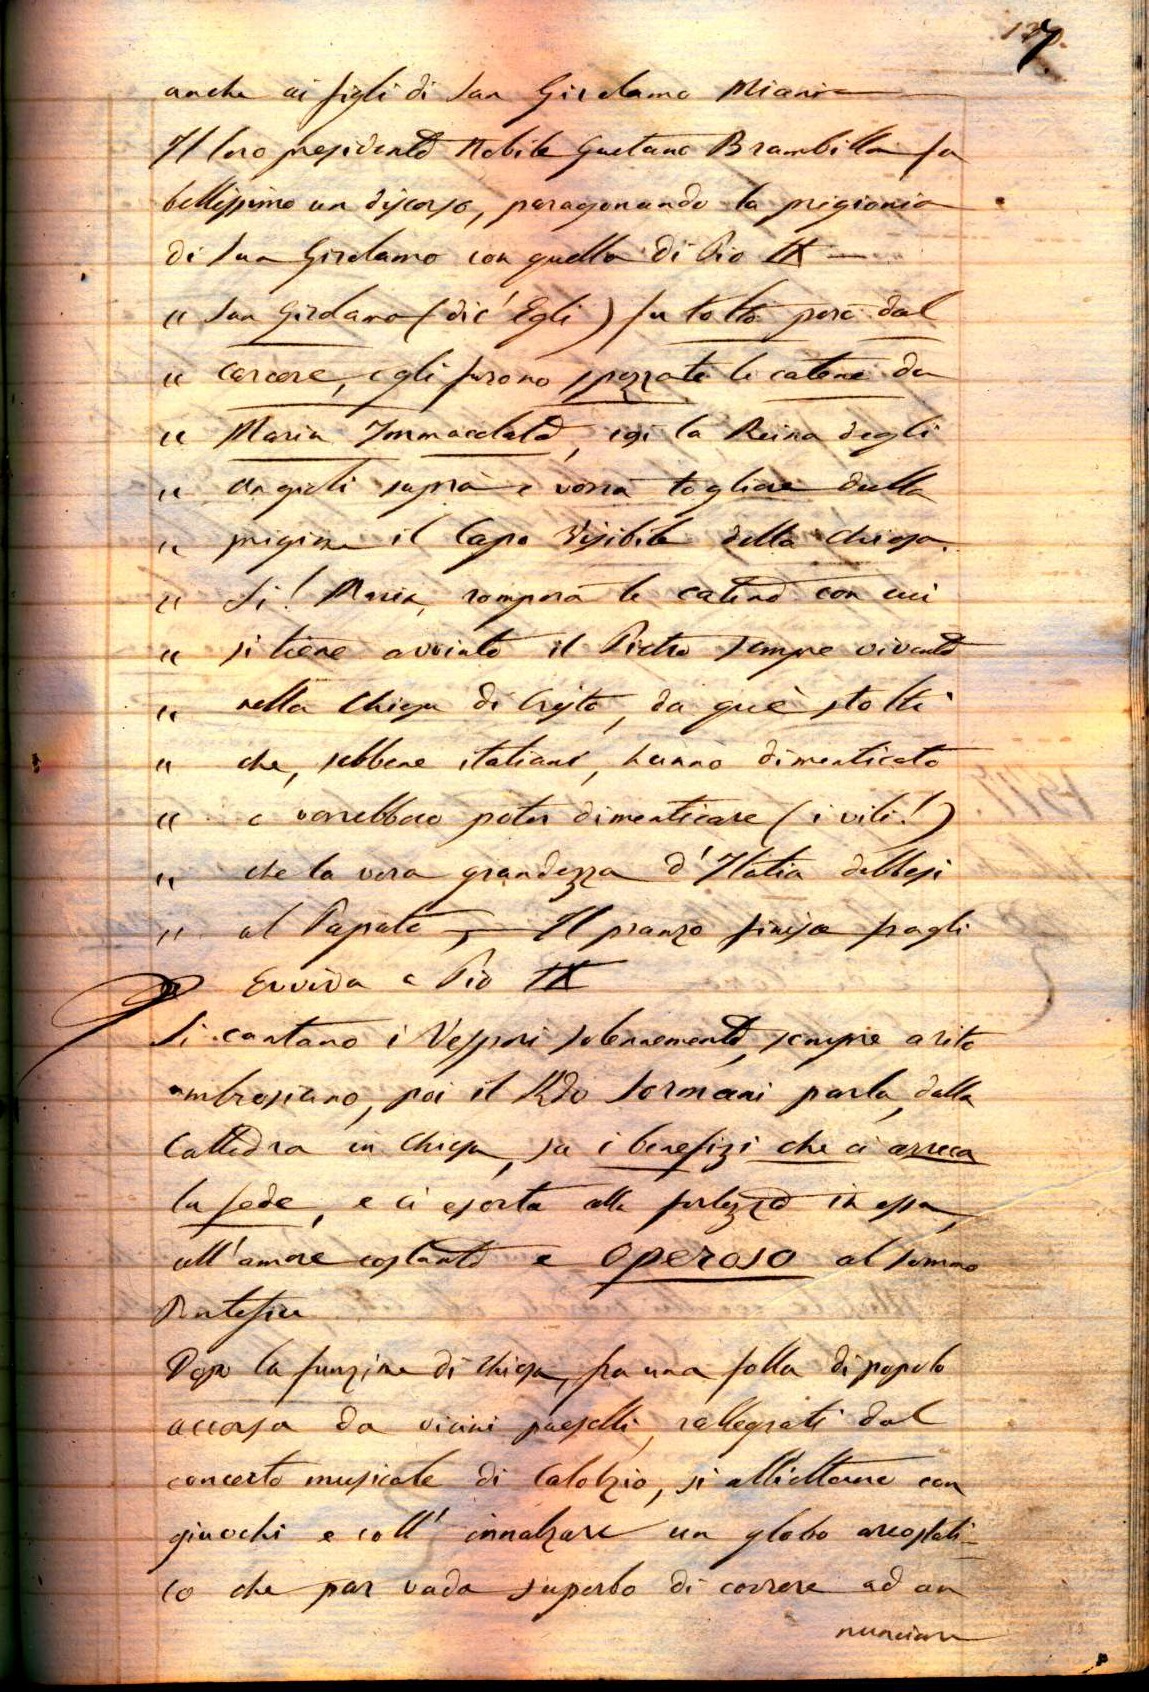 7.
anche ai figli di San Girolamo Miani
Il loro presidente Nobile Gaetano Brambilla fa
bellissimo un discorso, paragonando la prigionia
di San Girolamo con quella di Pio IX —
" San Girolamo (dic' Egli) fu tolto però dal
" carcere, e gli furono spezzate le catene da
" Maria Immacolata, così la Reina degli
" Angioli saprà e vorrà togliere dalla
" prigione il Capo Visibile della Chiesa.
" Si! Maria, romperà le catene con cui
" si tiene avvinto il Pietro sempre vivente
" nella Chiesa di Cristo, da que' stolti
" che, sebbene italiani, hanno dimenticato
" e vorrebbero poter dimenticare (i vili!)
" che la vera grandezza d'Italia debbesi
" al Papato —, — Il pranzo finisce fragli
Evviva a Pio IX
Si cantano i Vesperi solennemente, sempre a rito
ambrosiano, poi il Rdo Sormani parla, dalla
Cattedra in Chiesa, su i benefizi che ci arreca
la fede, e ci esorta alla fortezza in essa,
all'amore costante e operoso al Sommo
Pontefice
Dopo la funzione di Chiesa, fra una folla di popolo
accorsa da vicini paeselli, rallegrati dal
concerto musicale di Calolzio, si allietarono con
giuochi e coll' innalzare un globo areostati-
co che par vada superbo di correre ad an
nunciare